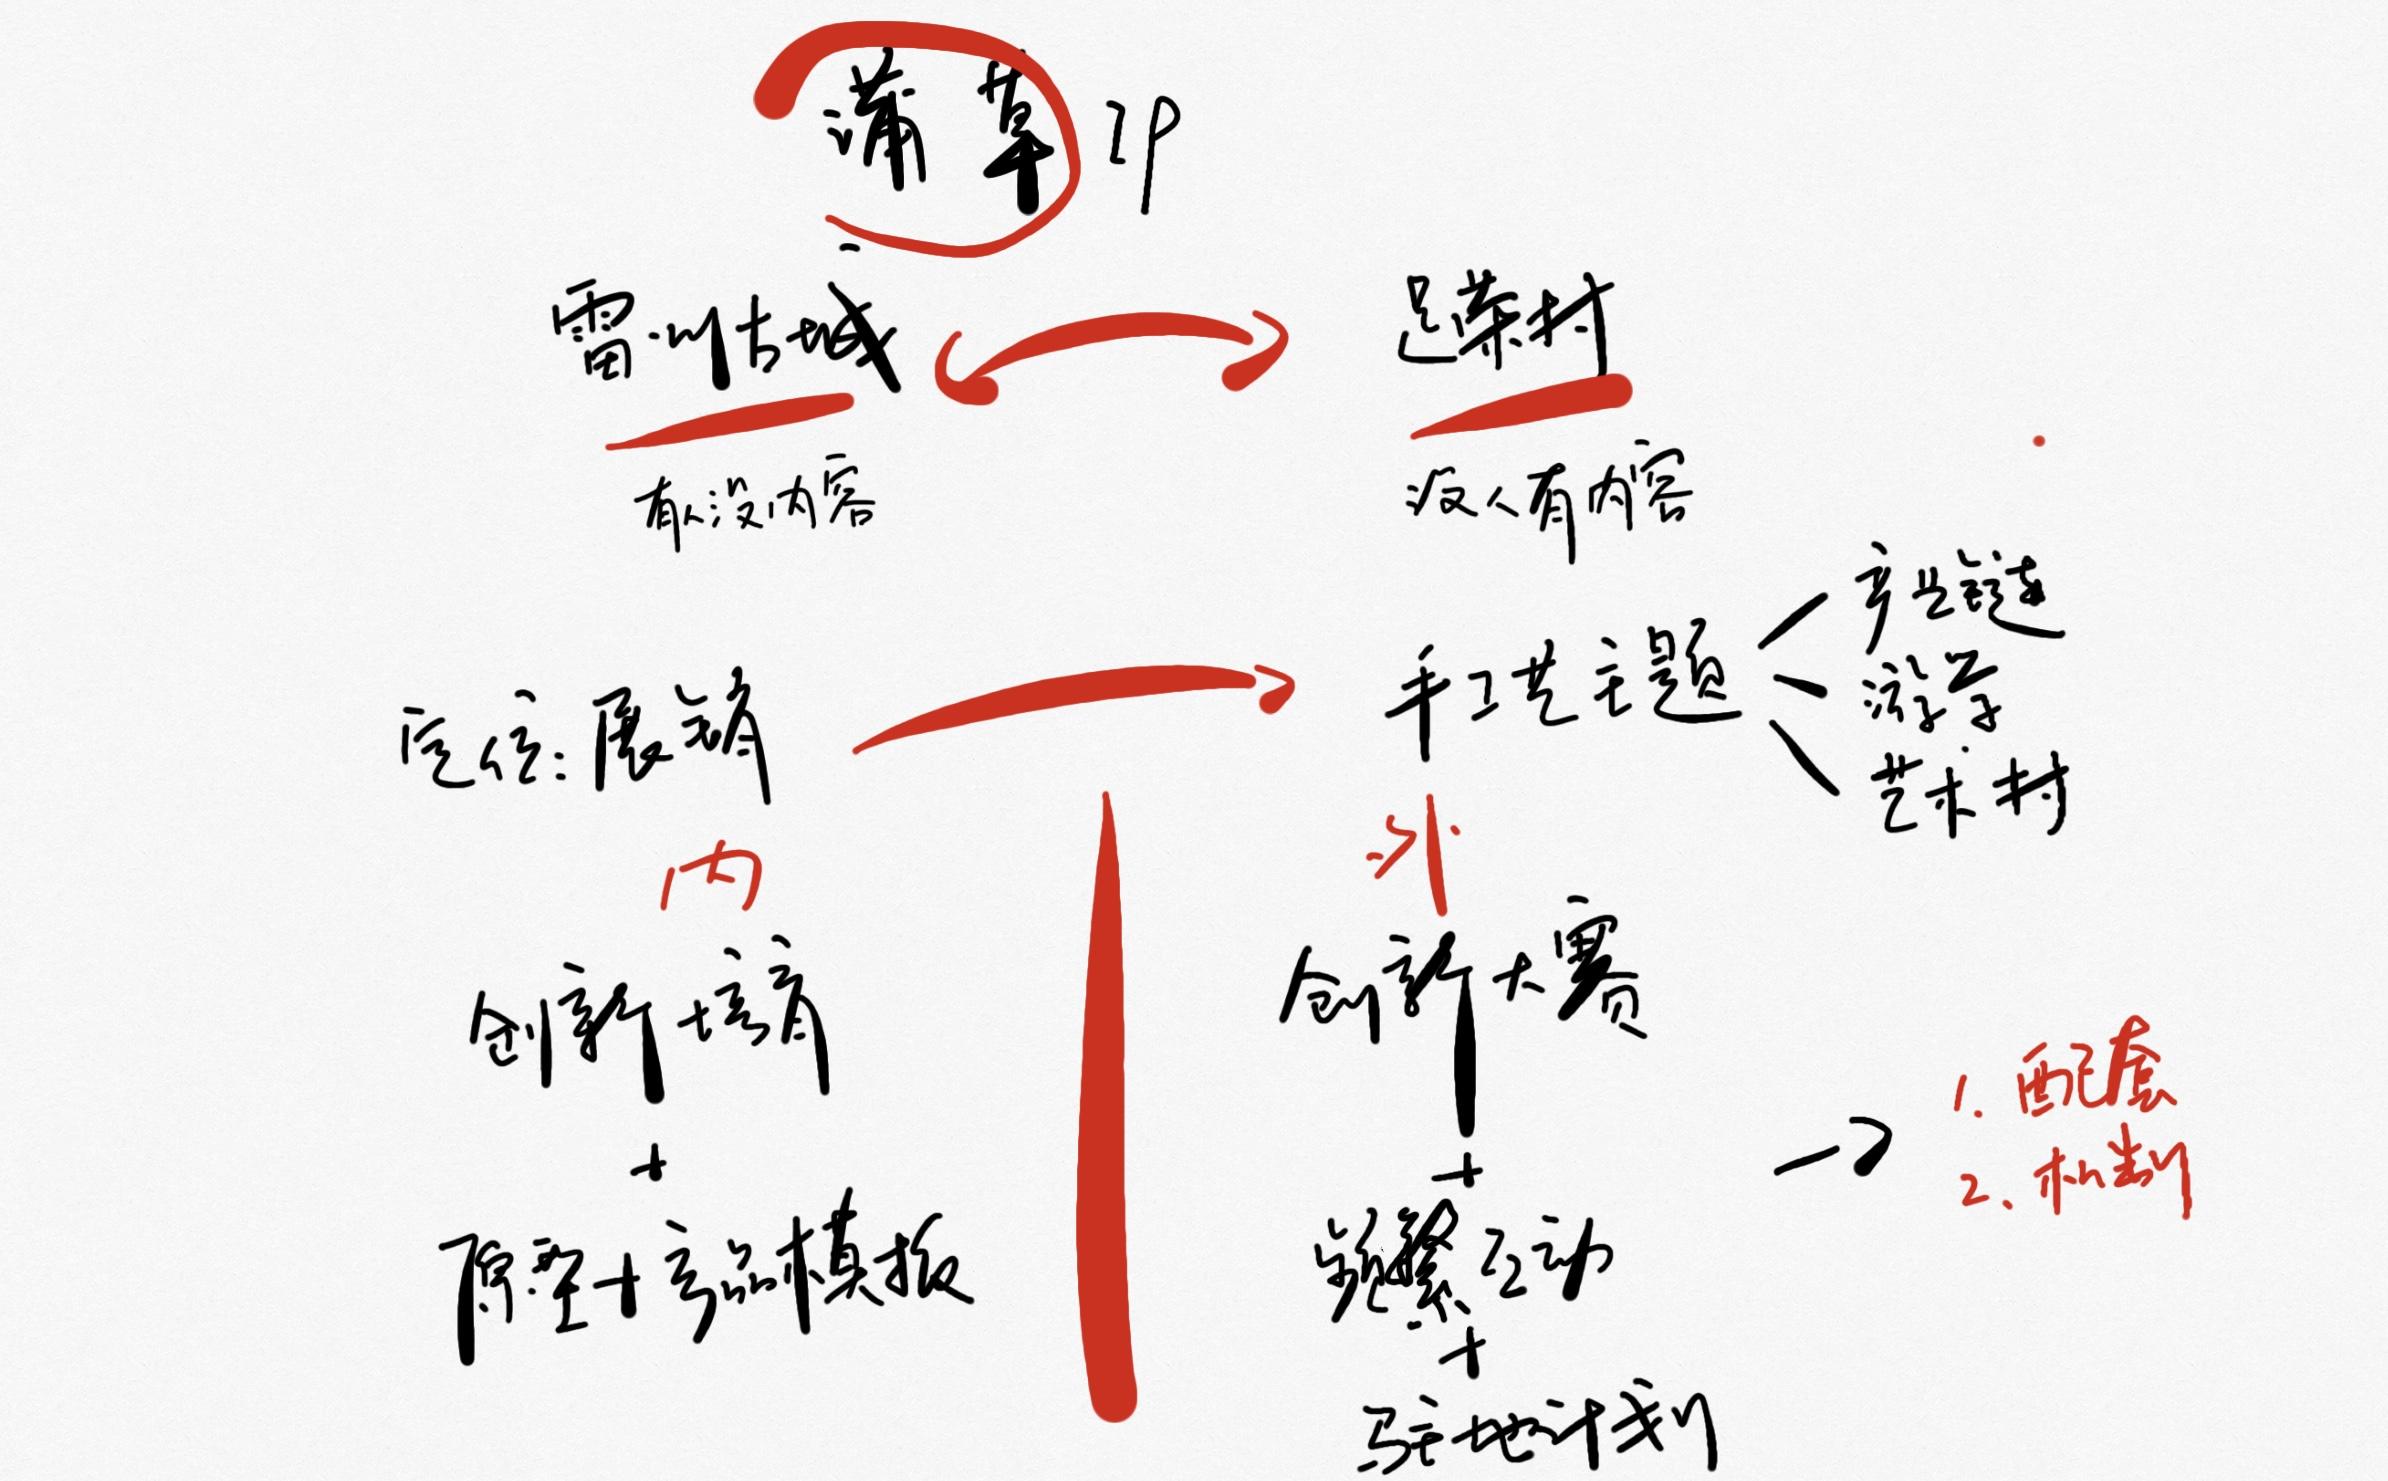 蒲草IP
雷州古城
足荣村
有人没内容
没人有内容
定位：展销
手工艺主题
产业链
游学
艺术村
内
外
创新培育
创新大赛
+
+
原型+产品模板
频繁互动
+
驻地计划
→
1. 配套
2. 机制